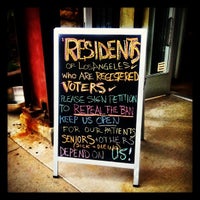 RESIDENTS
OF LOS ANGELES ✓
WHO ARE REGISTERED
VOTERS ✓
PLEASE SIGN PETITION
TO REPEAL THE BAN
KEEP US OPEN
FOR OUR PATIENTS
SENIORS & OTHERS
SICK & DYING
DEPEND ON US!